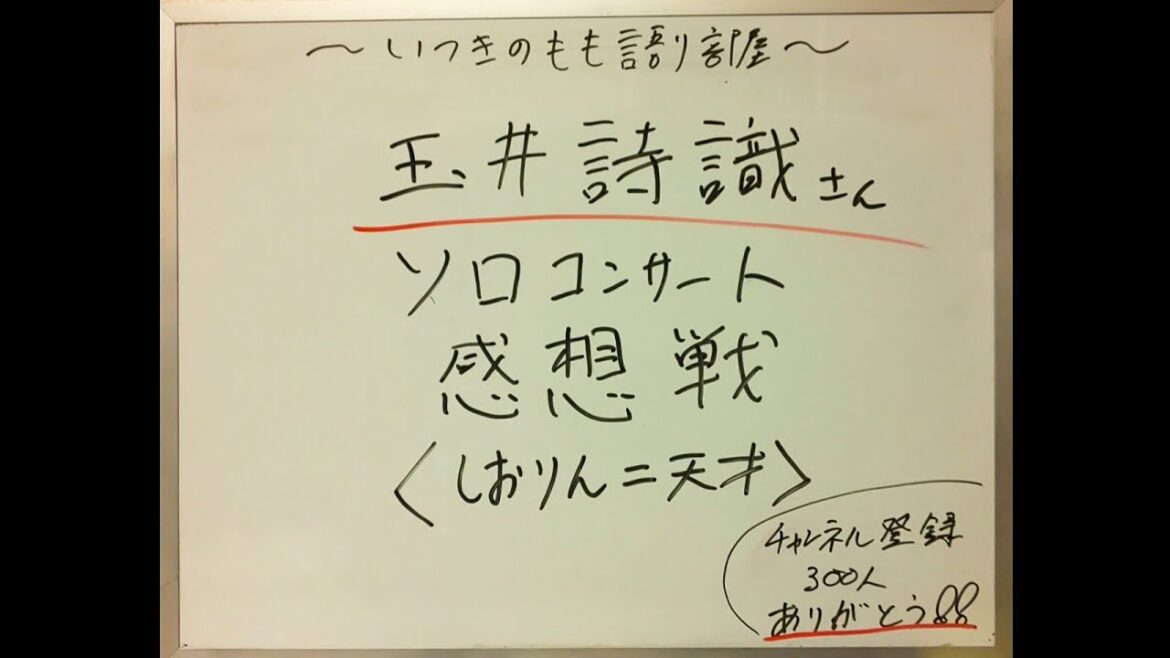 ～いつきのもも語り部屋～
玉井詩織さん
ソロコンサート
感想戦
〈しおりん=天才〉
チャンネル登録
300人
ありがとう!!